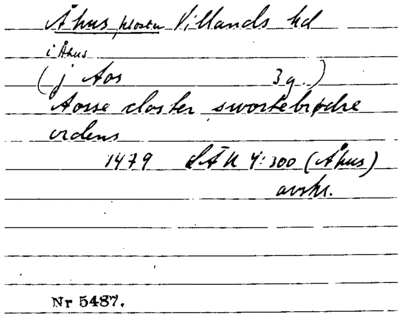 Åhus kloster Villands hd
i Åhus
(j Aos 3g.)
Aosse closter swortebrødre
ordens
1479 LÄU 4:300 (Åhus)
avskr.
Nr 5487.